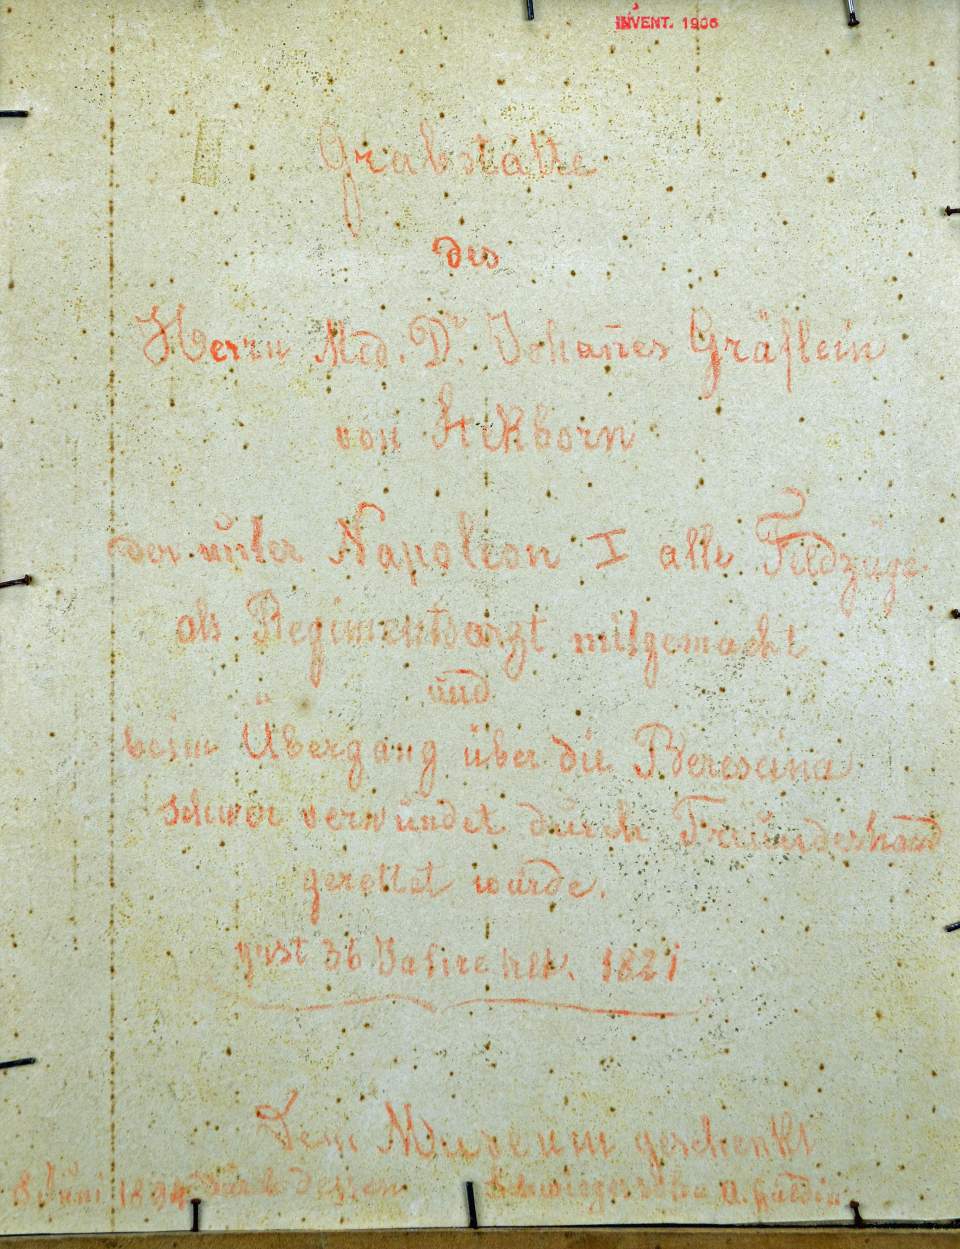 INVENT. 1906
Grabstätte
des
Herrn Med. Dr. Johanes Gräflein
von Stekborn
der unter Napoleon I alle Feldzüge
als Regimentsarzt mitgemacht
und
beim Übergang über die Beresina
schwer verwundet durch Freundeshand
gerettet wurde.
36 Jahre 1821
Dem Museum geschenkt
8 Juni 1894 durch dessen Schwiegersohn U.